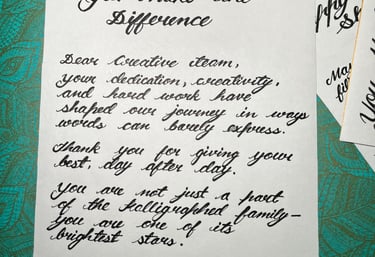 Difference
Dear Creative team,
your dedication, creativity,
and hard work have
shaped our journey in ways
words can barely express.
Thank you for giving your
best, day after day.
You are not just a part
of the Kalligraphed family—
you are one of its
brightest stars!